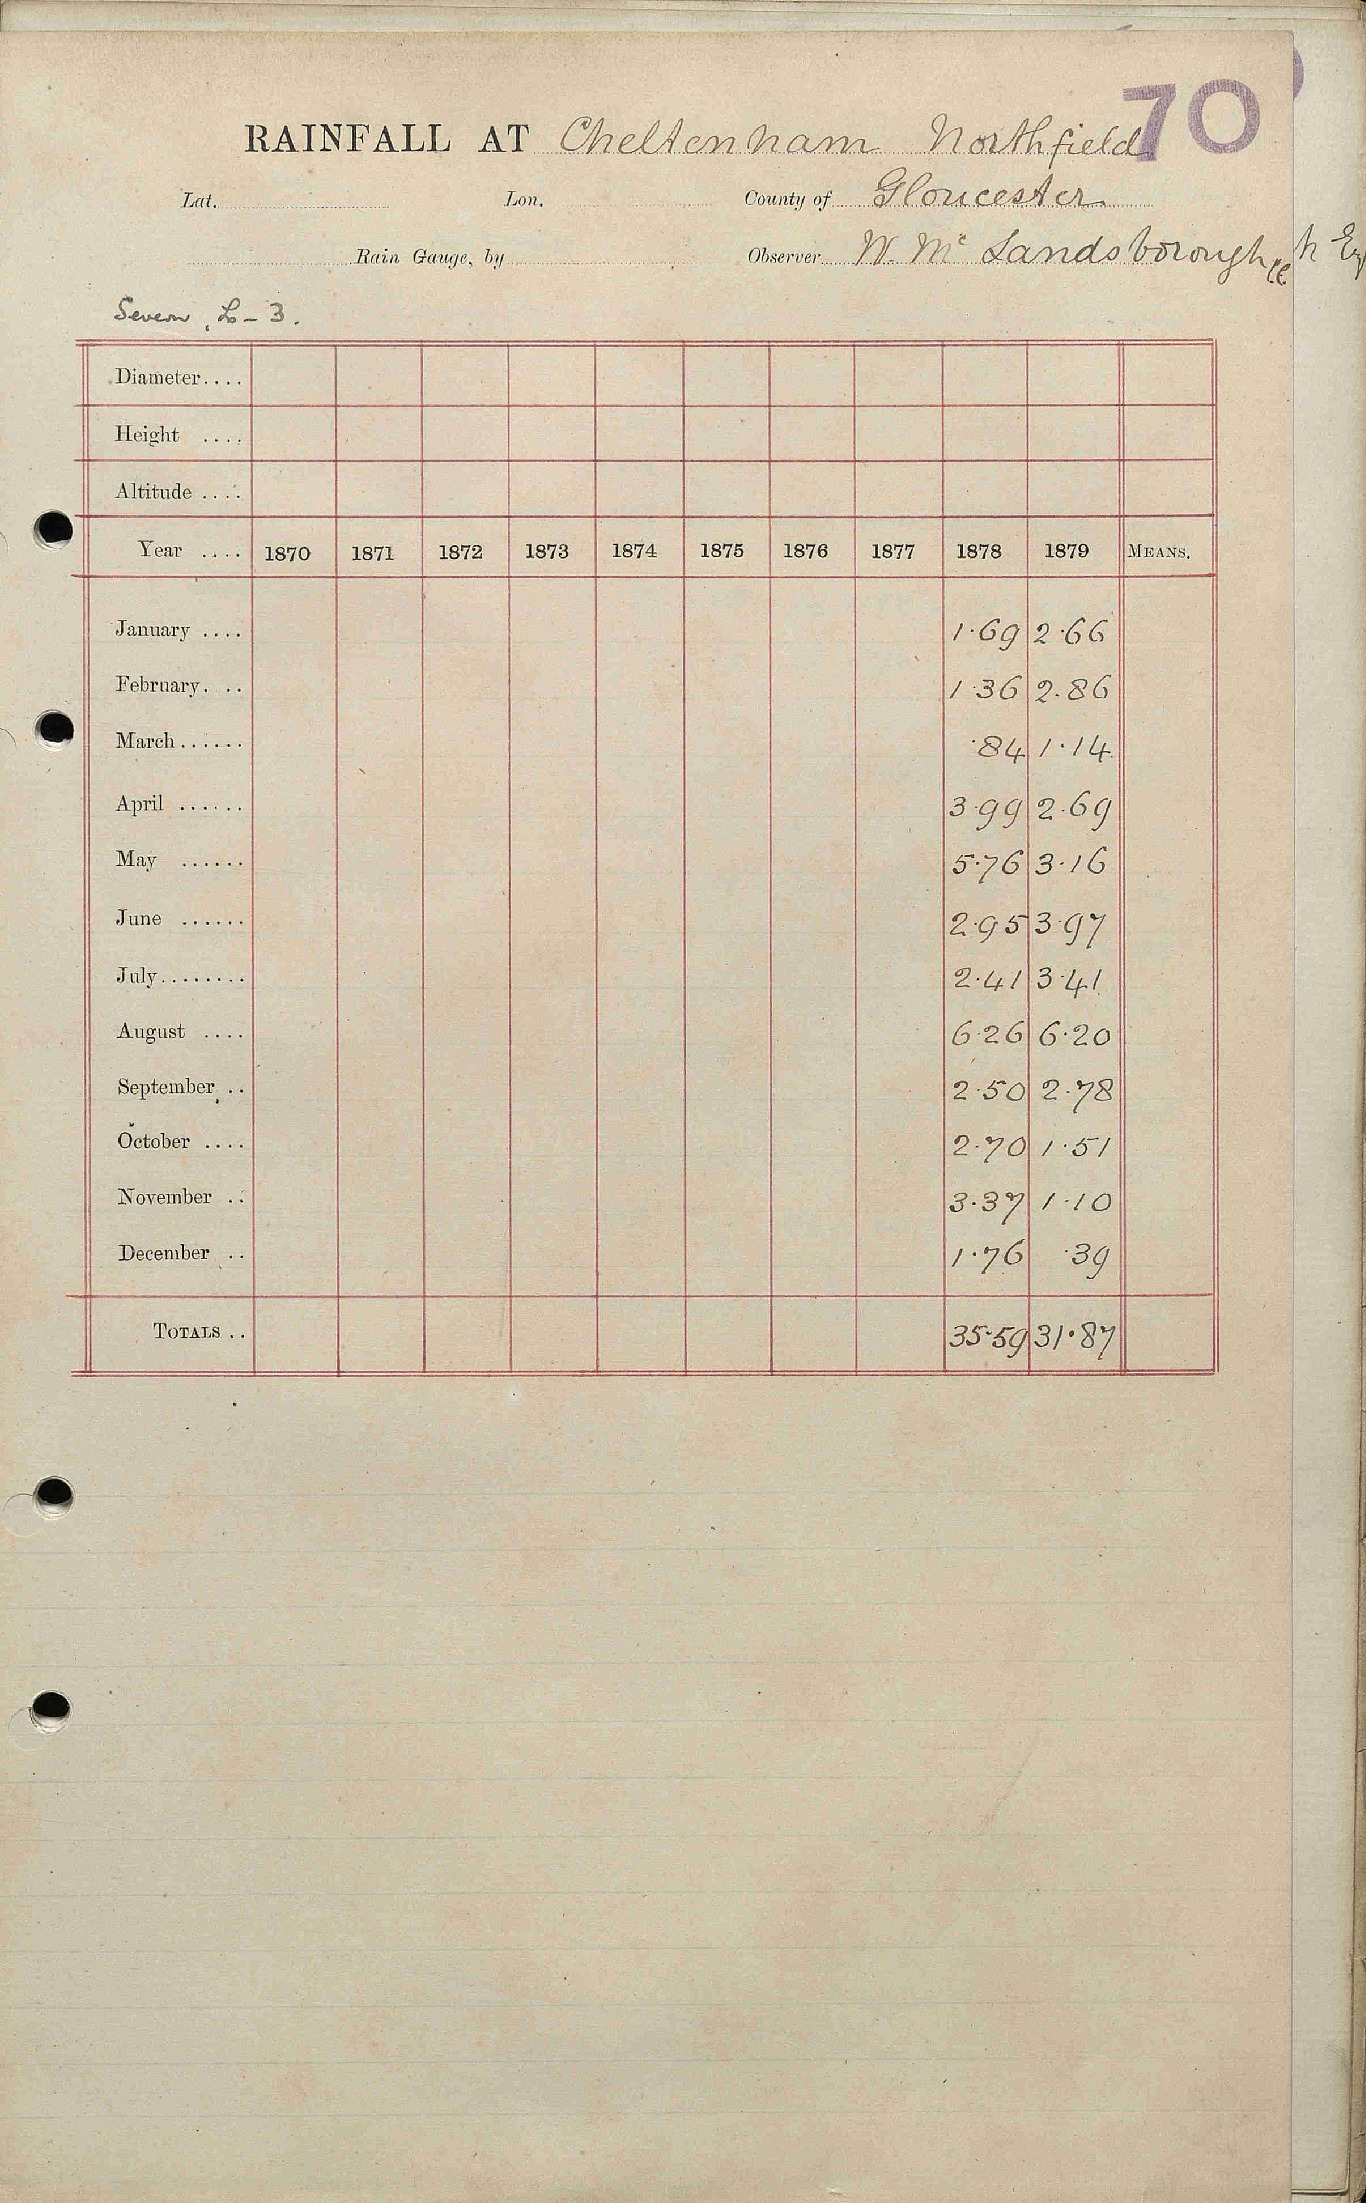 70
RAINFALL AT Cheltenham Northfield
Lat. Lon. County of Gloucester
Rain Gauge, by Observer W. Mc Landsborough CE h
Severn, L - 3.
Diameter....
Height ....
Altitude ....
Year .... 1870 1871 1872 1873 1874 1875 1876 1877 1878 1879 MEANS.
January .... 1.69 2.66
February. .. 1.36 2.86
March...... .84 1.14
April ...... 3.99 2.69
May ...... 5.76 3.16
June ...... 2.95 3.97
July........ 2.41 3.41
August .... 6.26 6.20
September .. 2.50 2.78
October .... 2.70 1.51
November .. 3.37 1.10
December .. 1.76 .39
TOTALS .. 35.59 31.87